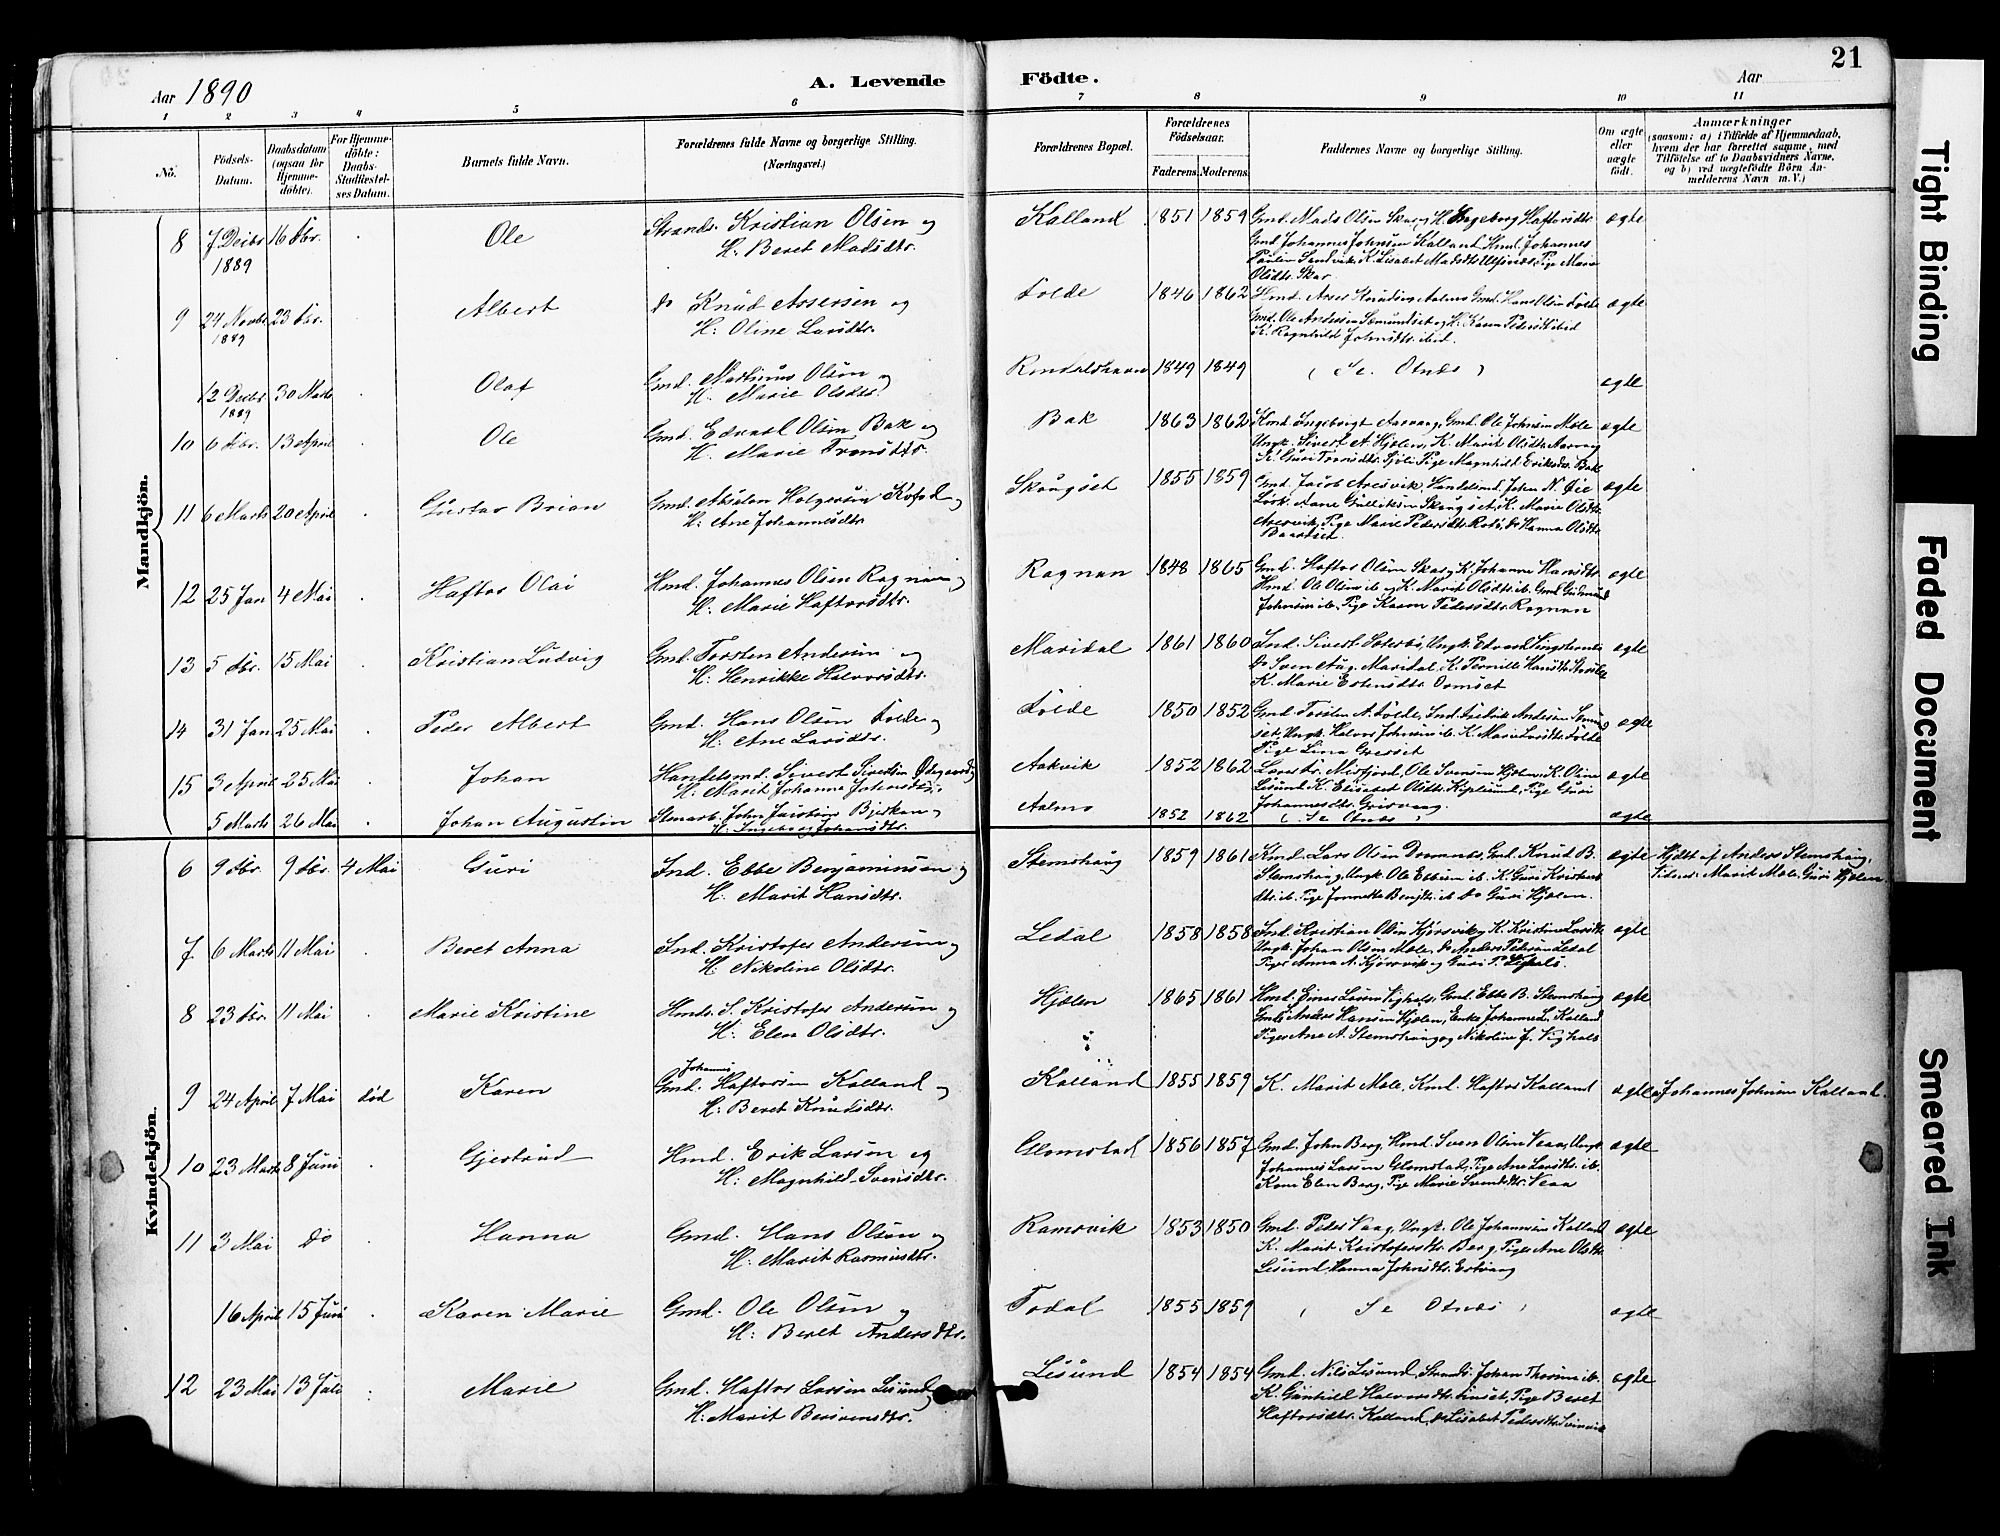 21
Aar 1890
A. Levende Födte.
Aar
1 2 3 4 5 6 7 8 9 10 11
No.
Födsels-Datum.
Daabsdatum (ogsaa for Hjemmedöbte).
For Hjemmedöbte: Daabs-Stadfæstelses Datum.
Barnets fulde Navn.
Forældrenes fulde Navne og borgerlige Stilling.
(Næringsvei.)
Forældrenes Bopæl.
Forældrenes Födselsaar.
Faderens. Moderens.
Faddernes Navne og borgerlige Stilling.
Om ægte eller uægte födt.
Anmærkninger
(saasom: a) i Tilfælde af Hjemmedaab, hvem der har forrettet samme, med Tilföielse af to Daabsvidners Navne, og b) ved uægtefödte Börn Anmelderens Navn m. V.)
Mandkjön.
8 7 Decbr 1889 16 Fbr. Ole Strands. Kristian Olsen og
H. Beret Madsdtr.
Kalland 1851 1859 Gmd. Mads Olsen Skar, H. Ingeborg Haftorsdtr.
Gmd Johannes Johnsen Kalland, Kmd. Johannes
Olsdtr. Skar
ægte
9 24 Novbr 1889 23 Fbr. Albert do Knud Assersen og
H. Oline Larsdtr.
Folde 1846 1862 Hmd. Asser Knudsen Aalmo Gmd. Hans Olsen Folde
Gmd. Ole Andersen Semundset og H. Karen Pedersdtr ibid
K. Ragnhild Johnsdtr. ibid.
ægte
12 Decbr 1889 30 Marts Olaf Gmd. Martinus Olsen og
H. Marie Olsdtr.
1849 1849 ( Se Otnes )
ægte
10 6 Fbr. 13 April Ole Gmd. Edvard Olsen Bak og
H. Marie Tronsdtr.
Bak 1863 1862 Kmd Ingebrigt Aarvaag, Gmd. Ole Johnsen Mele
Ungk. Sivert A. Hjelen, K. Marit Olsdtr. Aarvaag
K. Guri Tronsdtr. Sjøli Pige Magnhild Eriksdtr. Bak
ægte
11 6 Marts 20 April Gustav Brian Gmd. Absalon Holgersen Kofod og
H. Ane Johannesdtr.
Skaugset 1855 1859 Gmd. Jacob Aresvik, Handelsmd. John N. Øie
Skaugset, K. Marie Olsdtr.
Aresvik, Pige Marie Pedersdtr. Rodø, do Hanna Olsdtr.
Baardset.
ægte
12 25 Jan 4 Mai Haftor Olai Hmd. Johannes Olsen Rognan og
H. Marie Haftorsdtr.
Rognan 1848 1865 Gmd. Haftor Olsen Skar, K. Johanne Hansdtr.
Hmd. Ole Olsen ib. og K. Marit Olsdtr. ib. Gmd Gudmund
Johnsen ib. Pige Karen Pedersdtr. Rognan
ægte
13 5 Fbr. 15 Mai Kristian Ludvig Gmd. Torsten Andersen og
H. Henrikke Halvorsdtr.
Maridal 1861 1860 Ind. Sivert Soterbø, Ungk. Edvard
do Sven Aug. Maridal, K. Pernille Hansdtr.
K. Marie Estensdtr. Ormset
ægte
14 31 Jan 25 Mai Peder Albert Gmd. Hans Olsen Folde og
H. Ane Larsdtr.
Folde 1850 1852 Gmd Torsten A. Folde, Ind. Fredrik Andersen Semund
set, Ungk. Halvor Johnsen ib. K. Marie Larsdtr. Folde
Pige Lina Grøsset
ægte
15 3 April 25 Mai Johan Handelsmd. Sivert Sivertsen Ødegaard og
H. Marit Johanne Johnsdtr.
Aakvik 1852 1862 Misfjord, Ole Svensen Hjelen, K. Oline
Lesund K. Elisabet Olsdtr. Kiplesund, Pige Guri
Johannesdtr. Grisvaag.
ægte
5 Marts 26 Mai Johan Augustin Stenarb. John Jacobsen Bjerkan og
H. Ingeborg Johansdtr.
Aalmo 1852 1862 ( Se Otnes )
ægte
Kvindekjön.
6 9 Fbr. 9 Fbr. 4 Mai Guri Ind. Ebbe Benjaminsen og
H. Marit Hansdtr.
Stemshaug 1859 1861 Kmd. Lars Olsen Dromnes, Gmd. Knud B.
Stemshaug, Ungk. Ole Ebbesen ib. K. Guri Kristens
dtr. ib. Pige Jonnette Benjdtr. ib. do Guri Hjelen.
ægte Hjdbt af Anders Stemshaug,
Marit Mele, Guri Hjelen.
7 6 Marts 11 Mai Beret Anna Ind. Kristofer Andersen og
H. Nikoline Olsdtr.
Ledal 1858 1858 Ind. Kristian Olsen Kjørsvik og K. Kristine Larsdtr.
Ungk. Johan Olsen Mele, do Anders Pedersen Ledal
Piger Anna A. Kjørsvik og Guri P. Vighals.
ægte
8 23 Fbr. 11 Mai Marie Kristine Hmds. S. Kristofer Andersen og
H. Elen Olsdtr.
Hjelen 1865 1861 Hmd. Einer Larsen Vighals, Gmd. Ebbe B. Stemshaug
Gmds Anders Hansen Hjelen, Enke Johanne L. Kalland
Piger Ane A. Stemshaug og Nikoline J. Vighals
ægte
9 24 April 7 Mai død Karen Johannes
Gmd. Haftorsen Kalland og
H. Beret Knudsdtr.
Kalland 1855 1859 K. Marit Mele, Kmd. Haftor Kalland ægte Johannes Johnsen Kalland.
10 23 Marts 8 Juni Gjertrud Hmd. Erik Larsen og
H. Magnhild Svensdtr.
Glomstad 1856 1857 Gmd. John Berg, Hmd. Sven Olsen Veaa, Ungk
Johannes Larsen Glomstad, Pige Ane Larsdtr. ib.
Kone Elen Berg, Pige Marie Svensdtr. Veaa
ægte
11 3 Mai do Hanna Gmd. Hans Olsen og
H. Marit Rasmusdtr.
Ramsvik 1853 1850 Gmd. Peder Vaag, Ungk. Ole Johannsen Kalland
K. Marit Kristofersdtr. Berg, Piger Ane Olsdtr.
Lesund, Hanna Johnsdtr. Ertvaag
ægte
16 April 15 Juni Karen Marie Gmd. Ole Olsen og
H. Beret Andersdtr.
Todal 1855 1859 ( Se Otnes )
ægte
12 23 Mai 13 Juli Marie Gmd. Haftor Larsen Lesund og
H. Marit
Lesund 1854 1854 Gmd. Nils Lesund, Strands. Johan Thorsen ib.
K. Gunhild Halvorsdtr. Finset, Pige Beret
Haftorsdtr. Kalland, do Lisabet Pedersdtr. Svinvik
ægte
Tight Binding
Faded Document
Smeared Ink